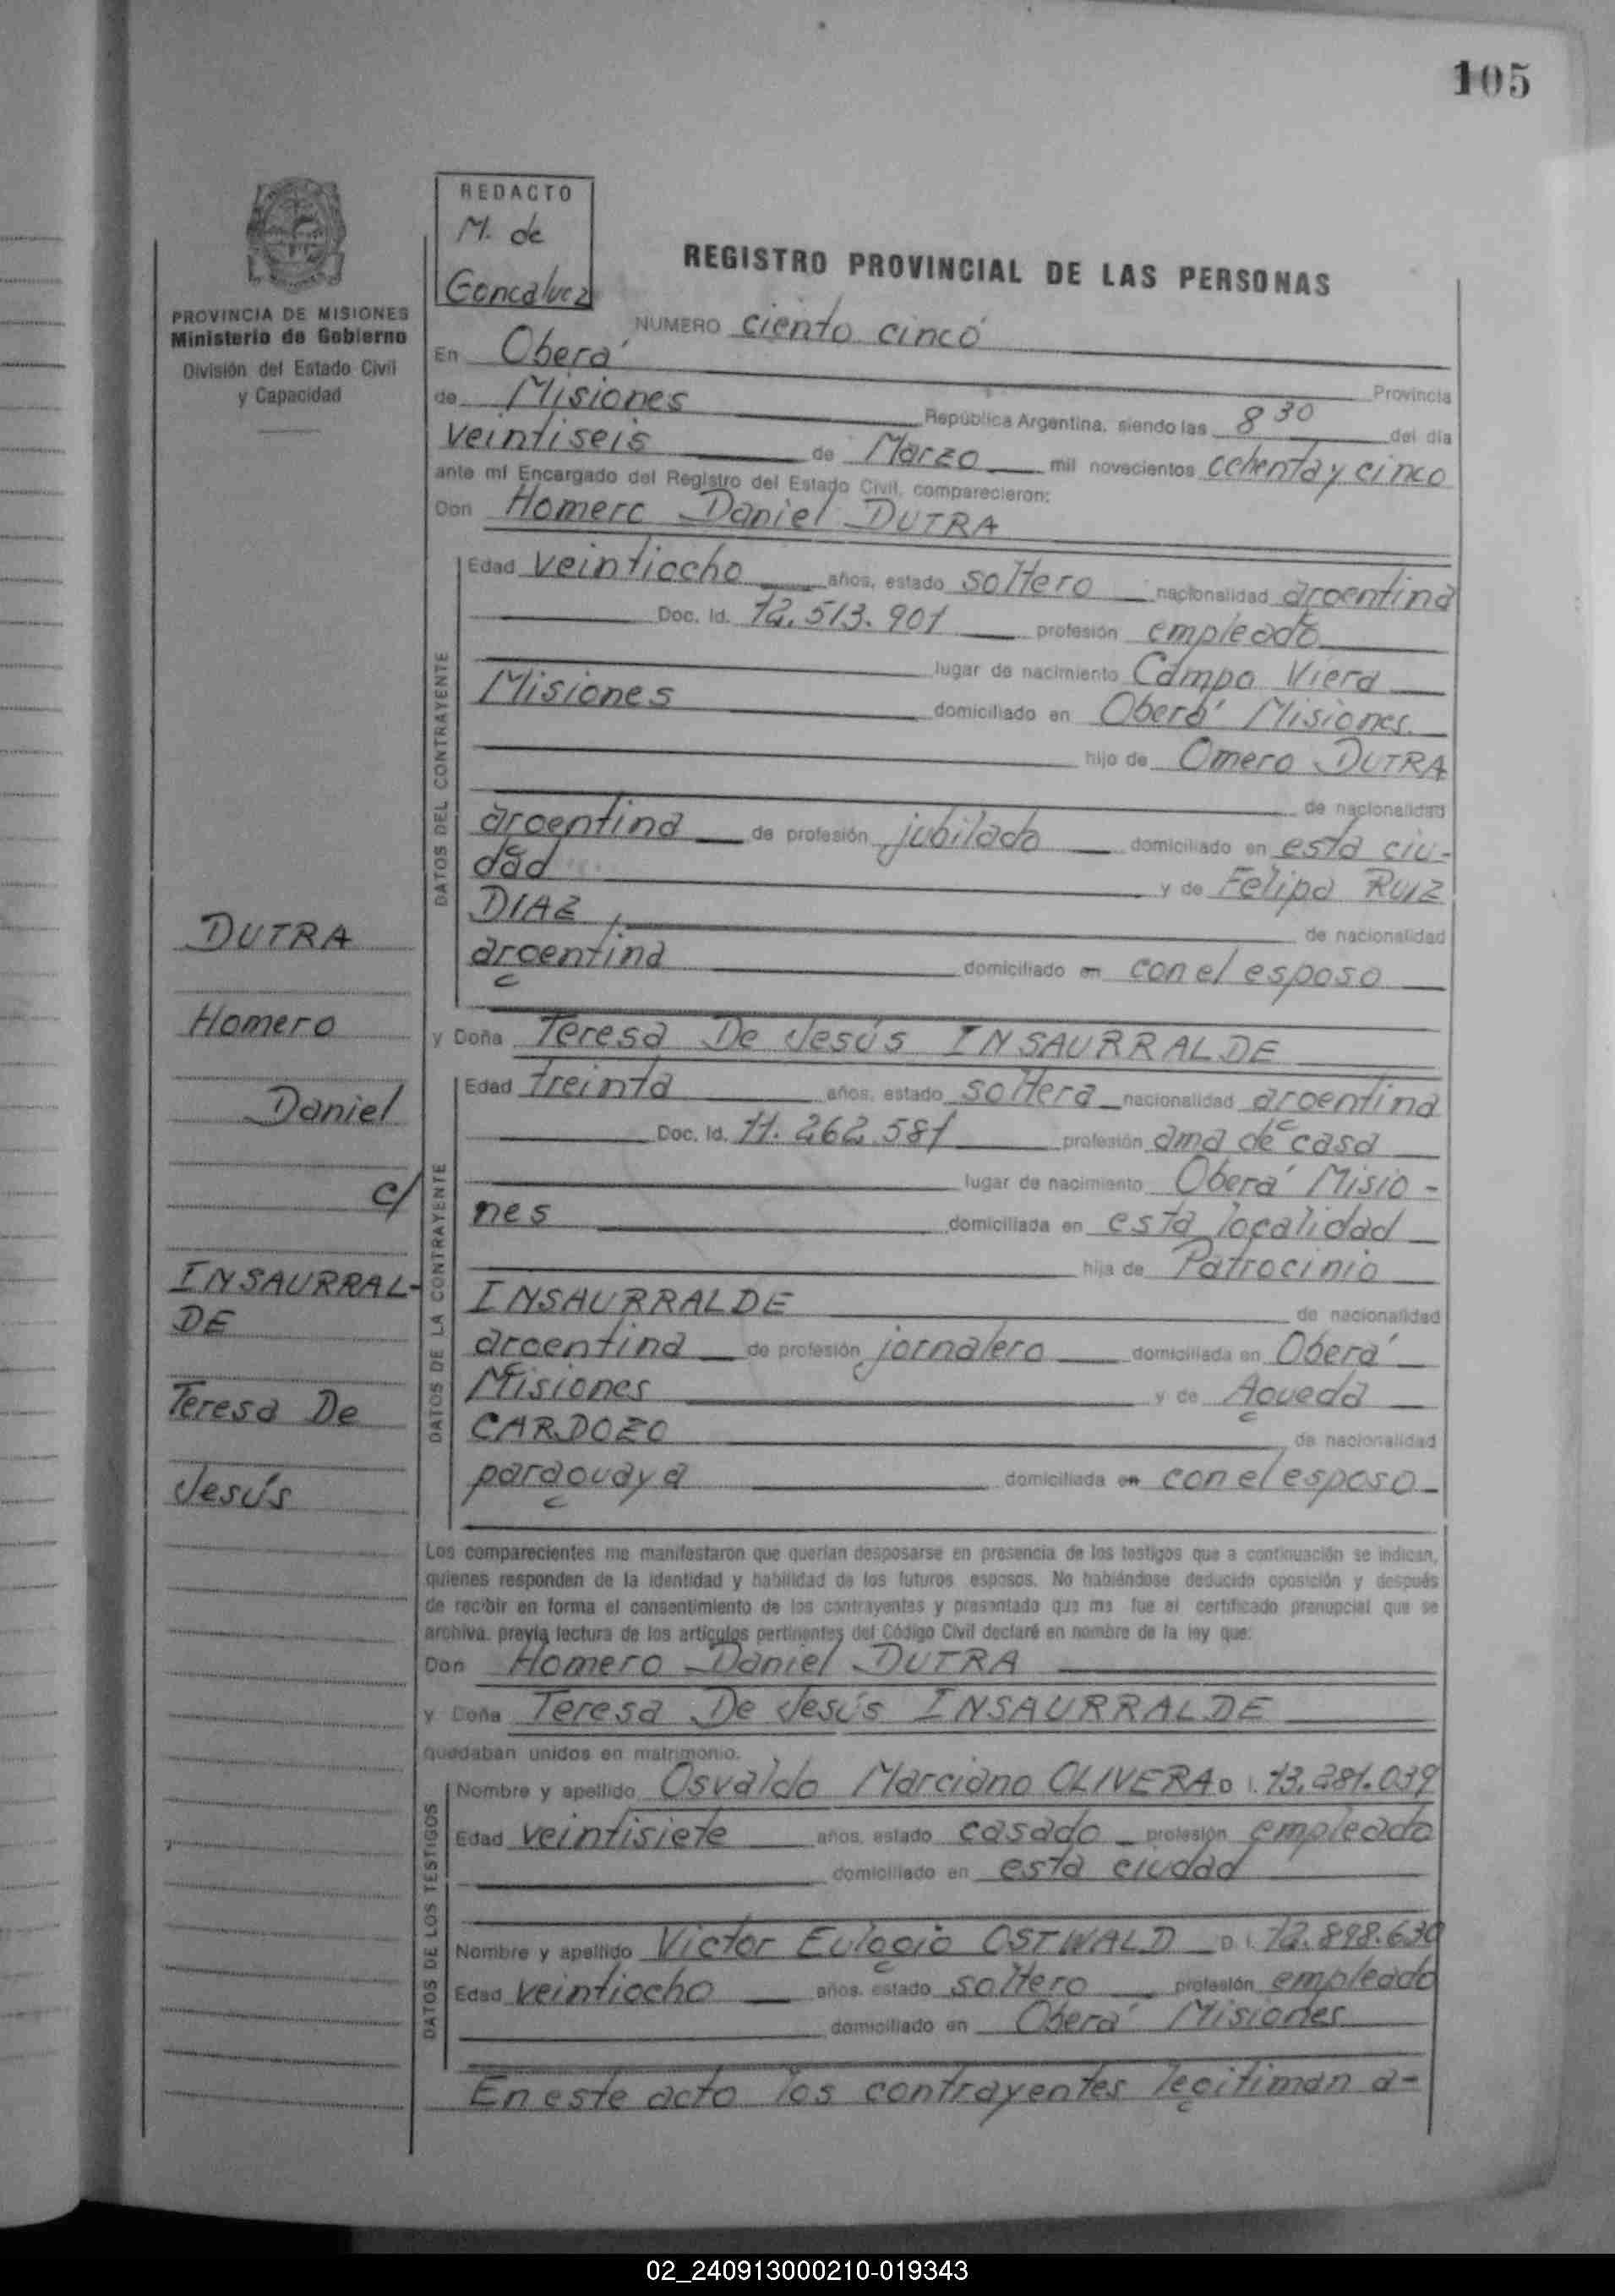 105
REDACTO
M. de
Goncalvez
PROVINCIA DE MISIONES
Ministerio de Gobierno
División del Estado Civil
y Capacidad
REGISTRO PROVINCIAL DE LAS PERSONAS
NUMERO ciento cinco
En Oberá Provincia
de Misiones República Argentina, siendo las 8 30 del día
veintiseis de Marzo mil novecientos ochenta y cinco
ante mí Encargado del Registro del Estado Civil, comparecieron:
Don Homero Daniel DUTRA
DATOS DEL CONTRAYENTE
Edad veintiocho años, estado soltero nacionalidad argentina
Doc. Id. 12.513.901 profesión empleado
lugar de nacimiento Campo Viera
Misiones domiciliado en Oberá Misiones.
hijo de Omero DUTRA
de nacionalidad
argentina de profesión jubilado domiciliado en esta ciu-
dad y de Felipa RUIZ
DIAZ, de nacionalidad
argentina domiciliado en con el esposo
y Doña Teresa De Jesús INSAURRALDE
DATOS DE LA CONTRAYENTE
Edad treinta años, estado soltera nacionalidad argentina
Doc. Id. 11.262.581 profesión ama de casa
lugar de nacimiento Oberá Misio-
nes domiciliada en esta localidad
hija de Patrocinio
INSAURRALDE de nacionalidad
argentina de profesión jornalero domiciliada en Oberá
Misiones y de Agueda
CARDOZO de nacionalidad
paraguaya domiciliada en con el esposo
DUTRA
Homero
Daniel
c/
INSAURRAL-
DE
Teresa De
Jesús
Los comparecientes me manifestaron que querían desposarse en presencia de los testigos que a continuación se indican,
quienes responden de la identidad y habilidad de los futuros esposos. No habiéndose deducido oposición y después
de recibir en forma el consentimiento de los contrayentes y presentado que me fue el certificado prenupcial que se
archiva, previa lectura de los artículos pertinentes del Código Civil declaré en nombre de la ley que:
Don Homero Daniel DUTRA
y Doña Teresa De Jesús INSAURRALDE
quedaban unidos en matrimonio.
DATOS DE LOS TESTIGOS
Nombre y apellido Osvaldo Marciano OLIVERA D.I. 13.281.039
Edad veintisiete años, estado casado profesión empleado
domiciliado en esta ciudad
Nombre y apellido Victor Eulogio OSTWALD D.I. 12.898.630
Edad veintiocho años, estado soltero profesión empleado
domiciliado en Oberá Misiones
En este acto los contrayentes legitiman a-
02_240913000210-019343